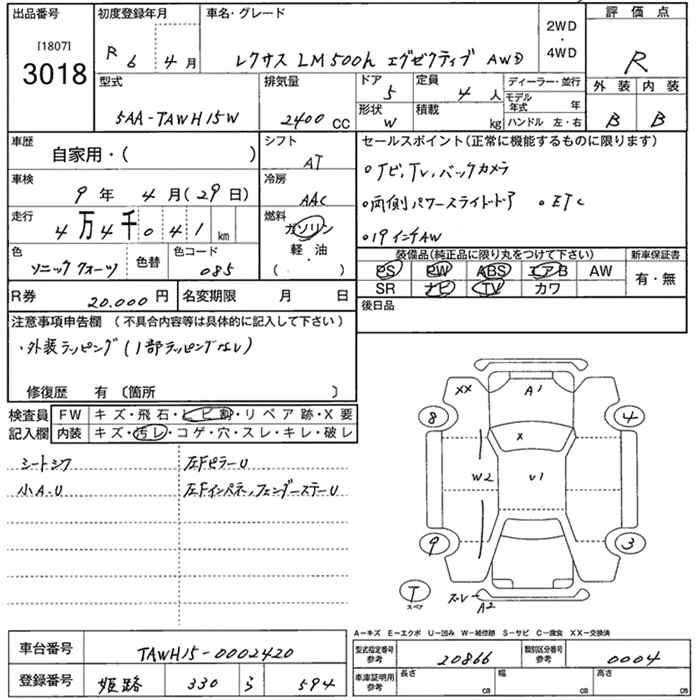 出品番号 初度登録年月 車名・グレード 2WD ・ 4WD 評価点
[1807] 3018 R 6 年 4 月 レクサス LM500h エグゼクティブ AWD R
型式 排気量 ドア 5 定員 4 人 ディーラー・並行 外装 内装
5AA-TAWH15W 2400 CC 形状 W 積載 kg モデル年式 年 B B
ハンドル 左・右
車歴 シフト セールスポイント(正常に機能するものに限ります)
自家用・( ) AT
車検 冷房 ○ナビ, TV, バックカメラ
9 年 4 月 (29 日) AAC ○両側パワースライドドア ○ETC
走行 燃料 ○19インチAW
4 万 4 千 0 4 1 km ガソリン
軽・油
( ・ )
色 色替 色コード 装備品(純正品に限り丸をつけて下さい) 新車保証書
ソニッククォーツ 085 PS PW ABS エアB AW 有・無
SR ナビ TV カワ
R券 20.000 円 名変期限 月 日 後日品
注意事項申告欄 (不具合内容等は具体的に記入して下さい)
・外装ラッピング(1部ラッピングなし)
修復歴 有 〔箇所 〕
検査員 FW キズ・飛石・ヒビ割・リペア跡・X要
記入欄 内装 キズ・汚レ・コゲ・穴・スレ・キレ・破レ
シートシワ 左FピラーU
小A.U 左Fインパネ,フェンダーステーU
XX A1
8 4
X
W2 U1
9 3
T スペア スレ A2
A−キズ E−エクボ U−凹み W−補修跡 S−サビ C−腐食 XX−交換済
車台番号 TAWH15-0002420 型式指定番号 参考 20866 類別区分番号 参考 0004
登録番号 姫路 330 る 594 車庫証明用 参考 長さ cm 幅 cm 高さ cm